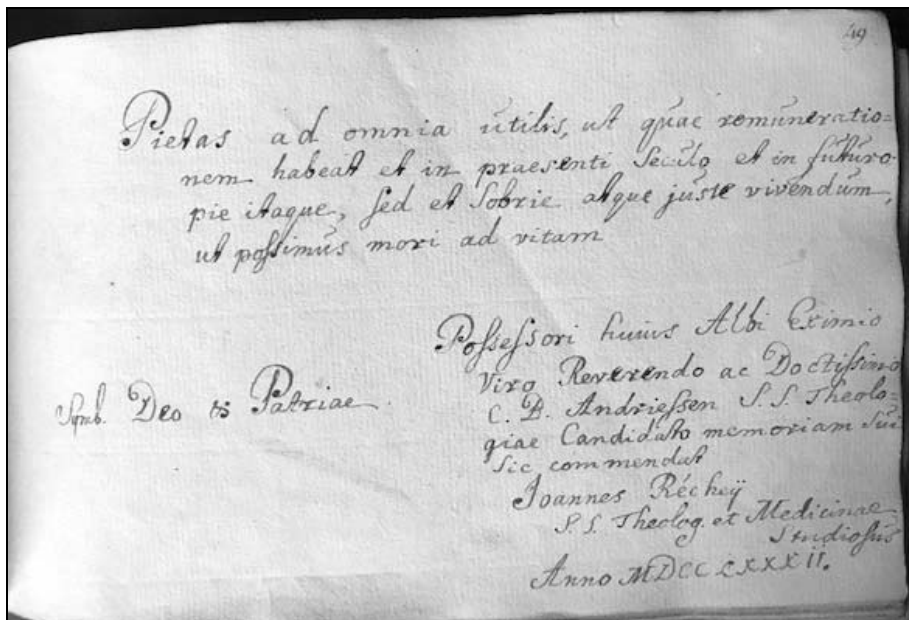 49
Pietas ad omnia utilis, ut quae remuneratio=
nem habeat et in praesenti Seculo et in futuro
pie itaque, sed et Sobrie atque juste vivendum,
ut possimus mori ad vitam
Possessori huius Albi Eximio
Viro Reverendo ac Doctissimo
C. B. Andriessen S. S. Theolo=
giae Candidato memoriam Sui
Sic commendat
Symb. Deo & Patriae
Joannes Récheÿ
S. S. Theolog. et Medicinae
Studiosus
Anno MDCCLXXXII.